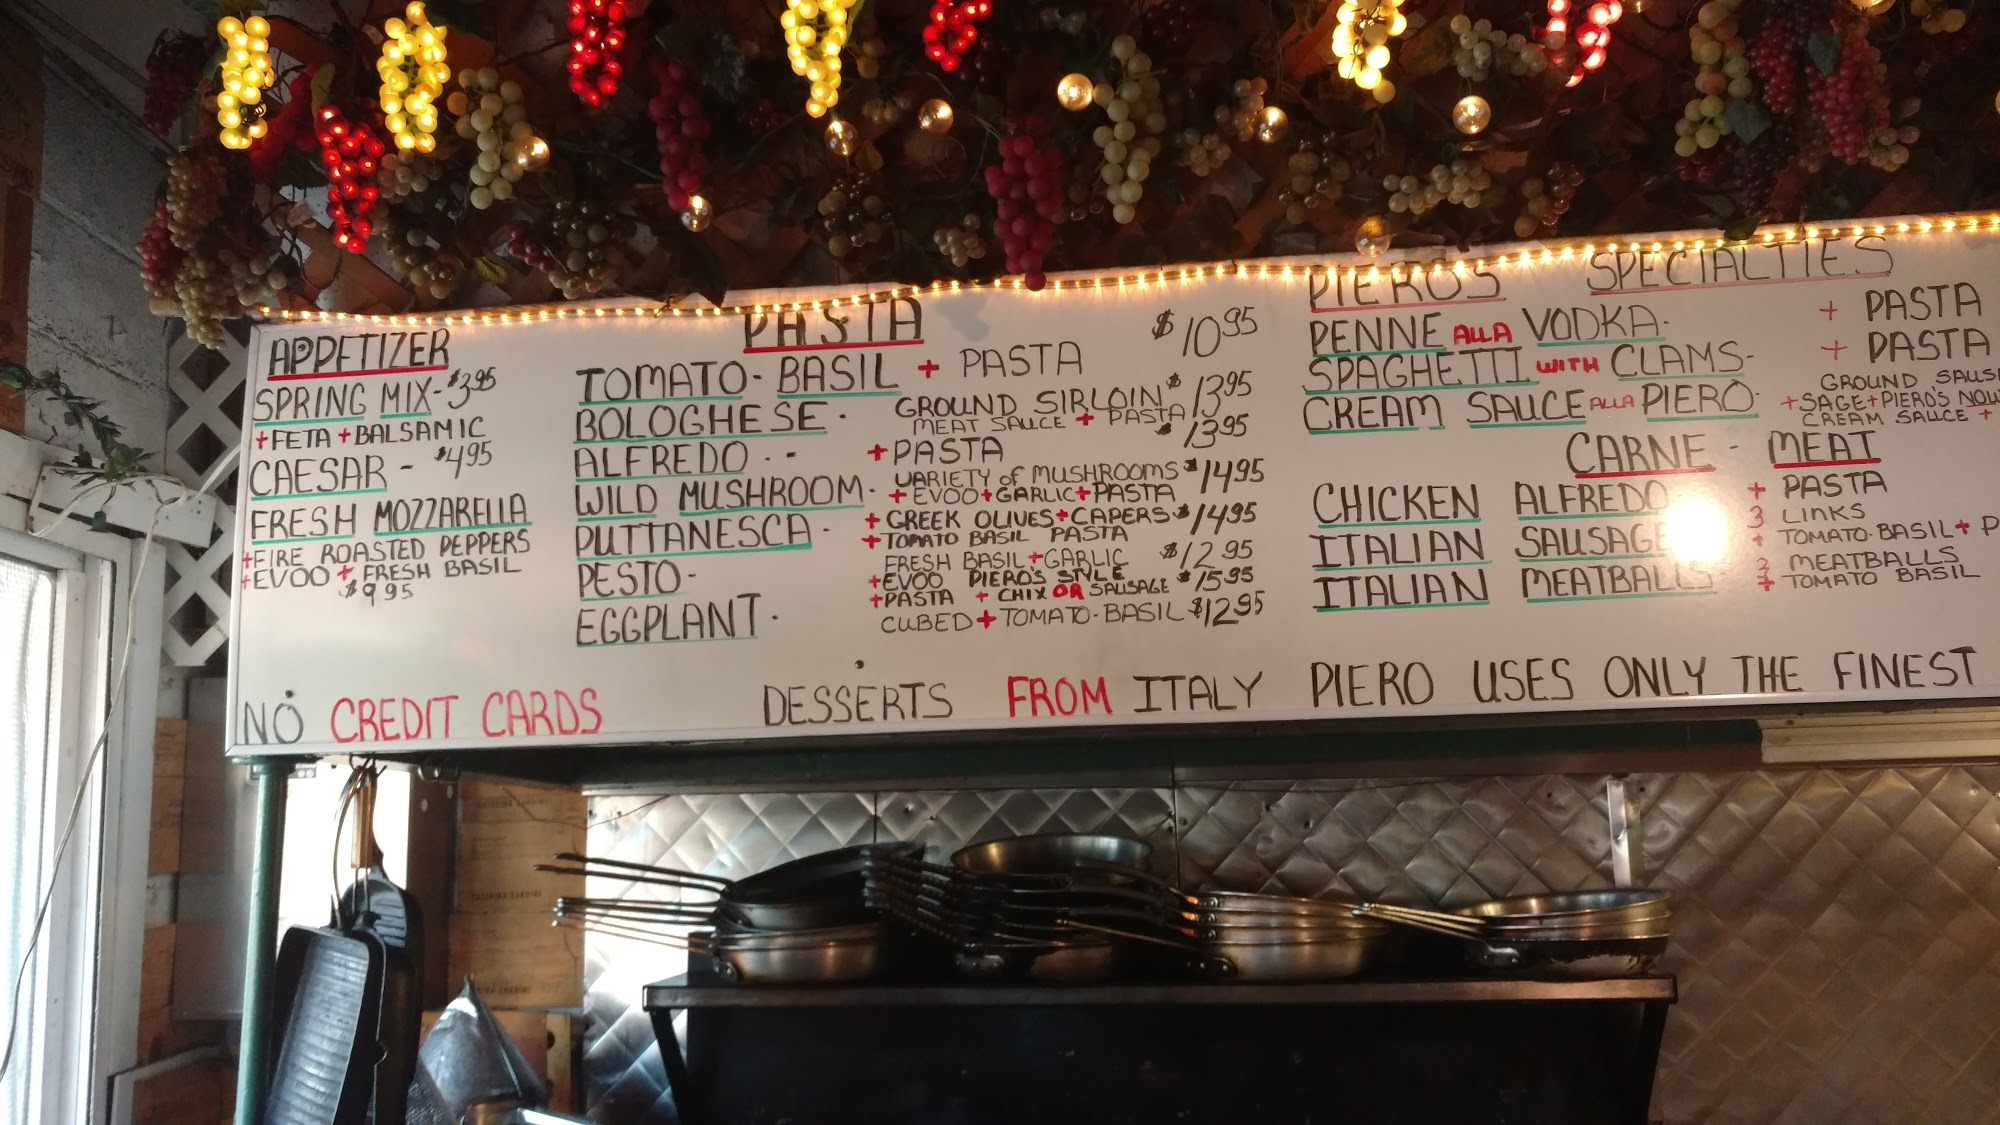 APPETIZER
SPRING MIX- $3.95
+FETA +BALSAMIC
CAESAR - $4.95
FRESH MOZZARELLA
+FIRE ROASTED PEPPERS
+EVOO + FRESH BASIL
$9.95
PASTA
TOMATO-BASIL + PASTA $10.95
BOLOGHESE - GROUND SIRLOIN $13.95
MEAT SAUCE + PASTA
ALFREDO - - +PASTA $13.95
WILD MUSHROOM - VARIETY of MUSHROOMS $14.95
+EVOO+GARLIC+PASTA
PUTTANESCA - +GREEK OLIVES+CAPERS $14.95
+TOMATO BASIL PASTA
PESTO- FRESH BASIL+GARLIC $12.95
+EVOO PIERO'S STYLE $15.95
+PASTA + CHIX OR SAUSAGE
EGGPLANT - CUBED+TOMATO-BASIL $12.95
PIERO'S SPECIALTIES
PENNE ALLA VODKA- + PASTA
SPAGHETTI WITH CLAMS- + PASTA
CREAM SAUCE ALLA PIERO- GROUND
+SAGE+PIERO'S
CREAM SAUCE +
CARNE - MEAT
CHICKEN ALFREDO + PASTA
ITALIAN SAUSAGE 3 LINKS
+ TOMATO-BASIL+
ITALIAN MEATBALLS- MEATBALLS
+ TOMATO BASIL
NO CREDIT CARDS DESSERTS FROM ITALY PIERO USES ONLY THE FINEST